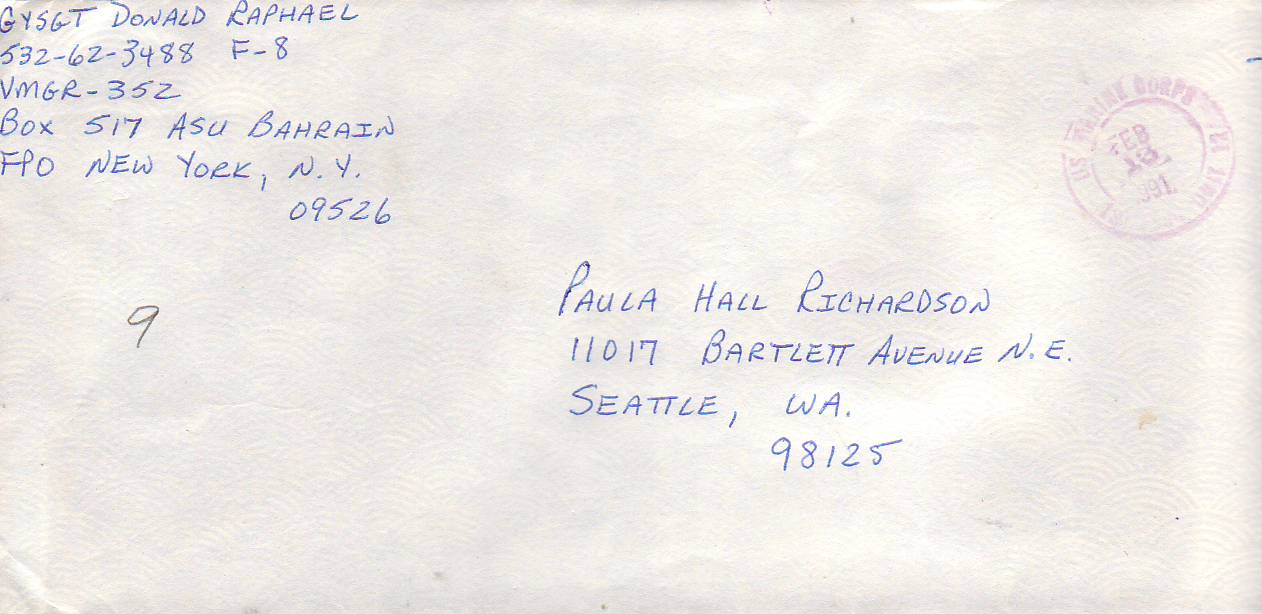 GYSGT DONALD RAPHAEL
532-62-3488 F-8
VMGR-352
BOX 517 ASU BAHRAIN
FPO NEW YORK, N.Y.
09526
US MARINE CORPS
FEB
1991
9
PAULA HALL RICHARDSON
11017 BARTLETT AVENUE N.E.
SEATTLE, WA.
98125